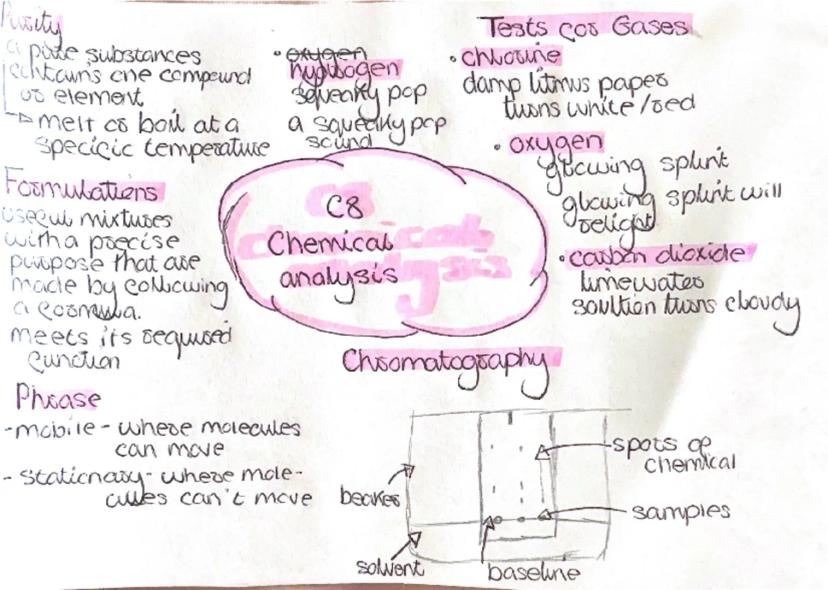 Purity
a pure substances
contains one compound
or element
melt or boil at a
specific temperature
Formulations
useful mixtures
with a precise
purpose that are
made by following
a formula.
meets its required
function
Phrase
-mobile - where molecules
can move
- stationary - where mole-
cules can't move
• oxygen
hydrogen
squeaky pop
a squeaky pop
sound
C8
Chemical
analysis
Tests for Gases
• chlorine
damp litmus paper
turns white/red
• oxygen
glowing splint
glowing splint will
relight
• carbon dioxide
limewater
soultion turns cloudy
Chromatography
beaker
solvent
baseline
spots of
chemical
samples